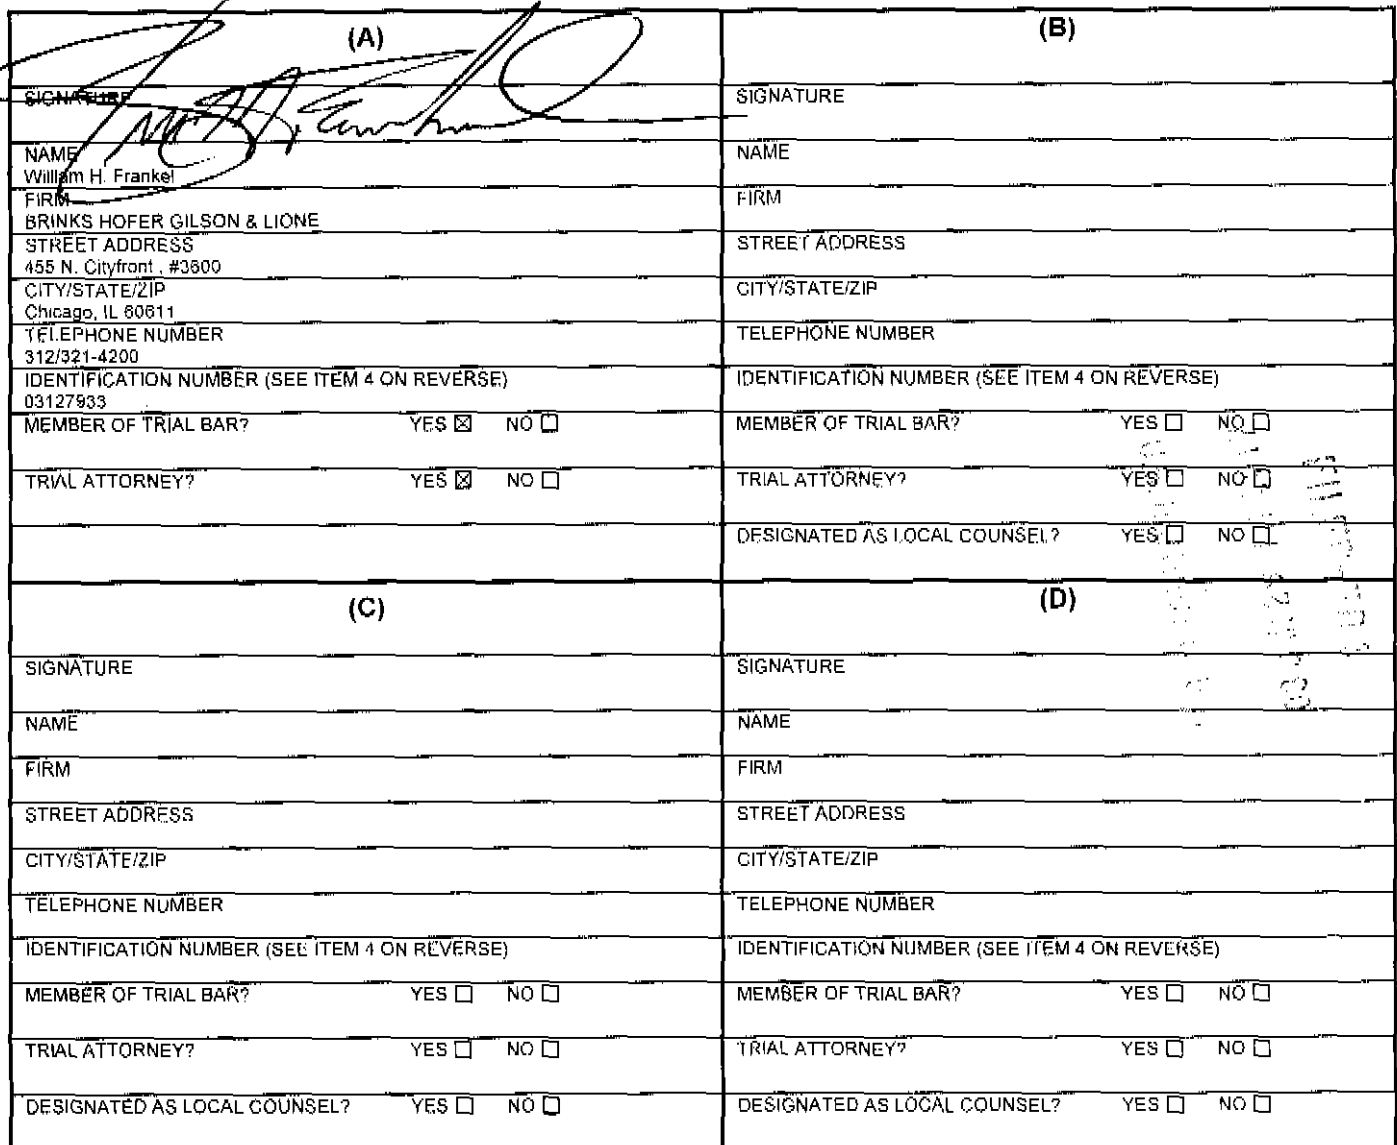 (A)
SIGNATURE
NAME
William H. Frankel
FIRM
BRINKS HOFER GILSON & LIONE
STREET ADDRESS
455 N. Cityfront , #3600
CITY/STATE/ZIP
Chicago, IL 60611
TELEPHONE NUMBER
312/321-4200
IDENTIFICATION NUMBER (SEE ITEM 4 ON REVERSE)
03127933
MEMBER OF TRIAL BAR? YES ☒ NO ☐
TRIAL ATTORNEY? YES ☒ NO ☐
(B)
SIGNATURE
NAME
FIRM
STREET ADDRESS
CITY/STATE/ZIP
TELEPHONE NUMBER
IDENTIFICATION NUMBER (SEE ITEM 4 ON REVERSE)
MEMBER OF TRIAL BAR? YES ☐ NO ☐
TRIAL ATTORNEY? YES ☐ NO ☐
DESIGNATED AS LOCAL COUNSEL? YES ☐ NO ☐
(C)
SIGNATURE
NAME
FIRM
STREET ADDRESS
CITY/STATE/ZIP
TELEPHONE NUMBER
IDENTIFICATION NUMBER (SEE ITEM 4 ON REVERSE)
MEMBER OF TRIAL BAR? YES ☐ NO ☐
TRIAL ATTORNEY? YES ☐ NO ☐
DESIGNATED AS LOCAL COUNSEL? YES ☐ NO ☐
(D)
SIGNATURE
NAME
FIRM
STREET ADDRESS
CITY/STATE/ZIP
TELEPHONE NUMBER
IDENTIFICATION NUMBER (SEE ITEM 4 ON REVERSE)
MEMBER OF TRIAL BAR? YES ☐ NO ☐
TRIAL ATTORNEY? YES ☐ NO ☐
DESIGNATED AS LOCAL COUNSEL? YES ☐ NO ☐